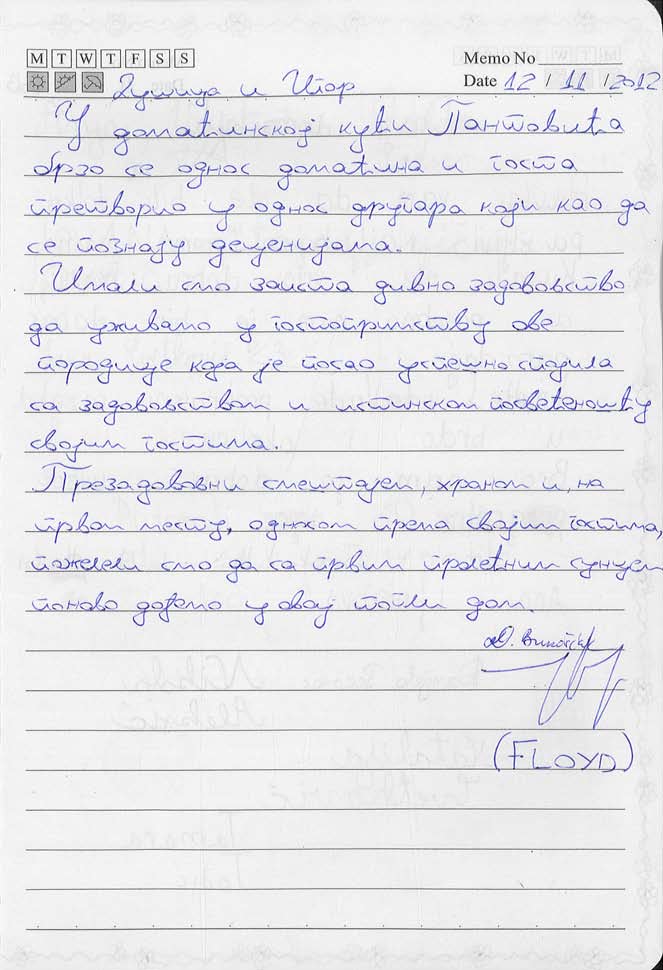 M T W T F S S
Memo No
Date 12 / 11 / 2012
Душица и Игор
У домаћинској кући Пантовића
брзо се однос домаћина и госта
претворио у однос другара који као да
се познају деценијама.
Имали смо заиста дивно задовољство
да уживамо у гостопримству ове
породице која је посао успешно спојила
са задовољством и истинском посвећеношћу
својим гостима.
Презадовољни смештајем, храном и, на
првом месту, односом према својим гостима,
пожелели смо да са првим пролећним сунцем
поново дођемо у овај топли дом.
(FLOYD)